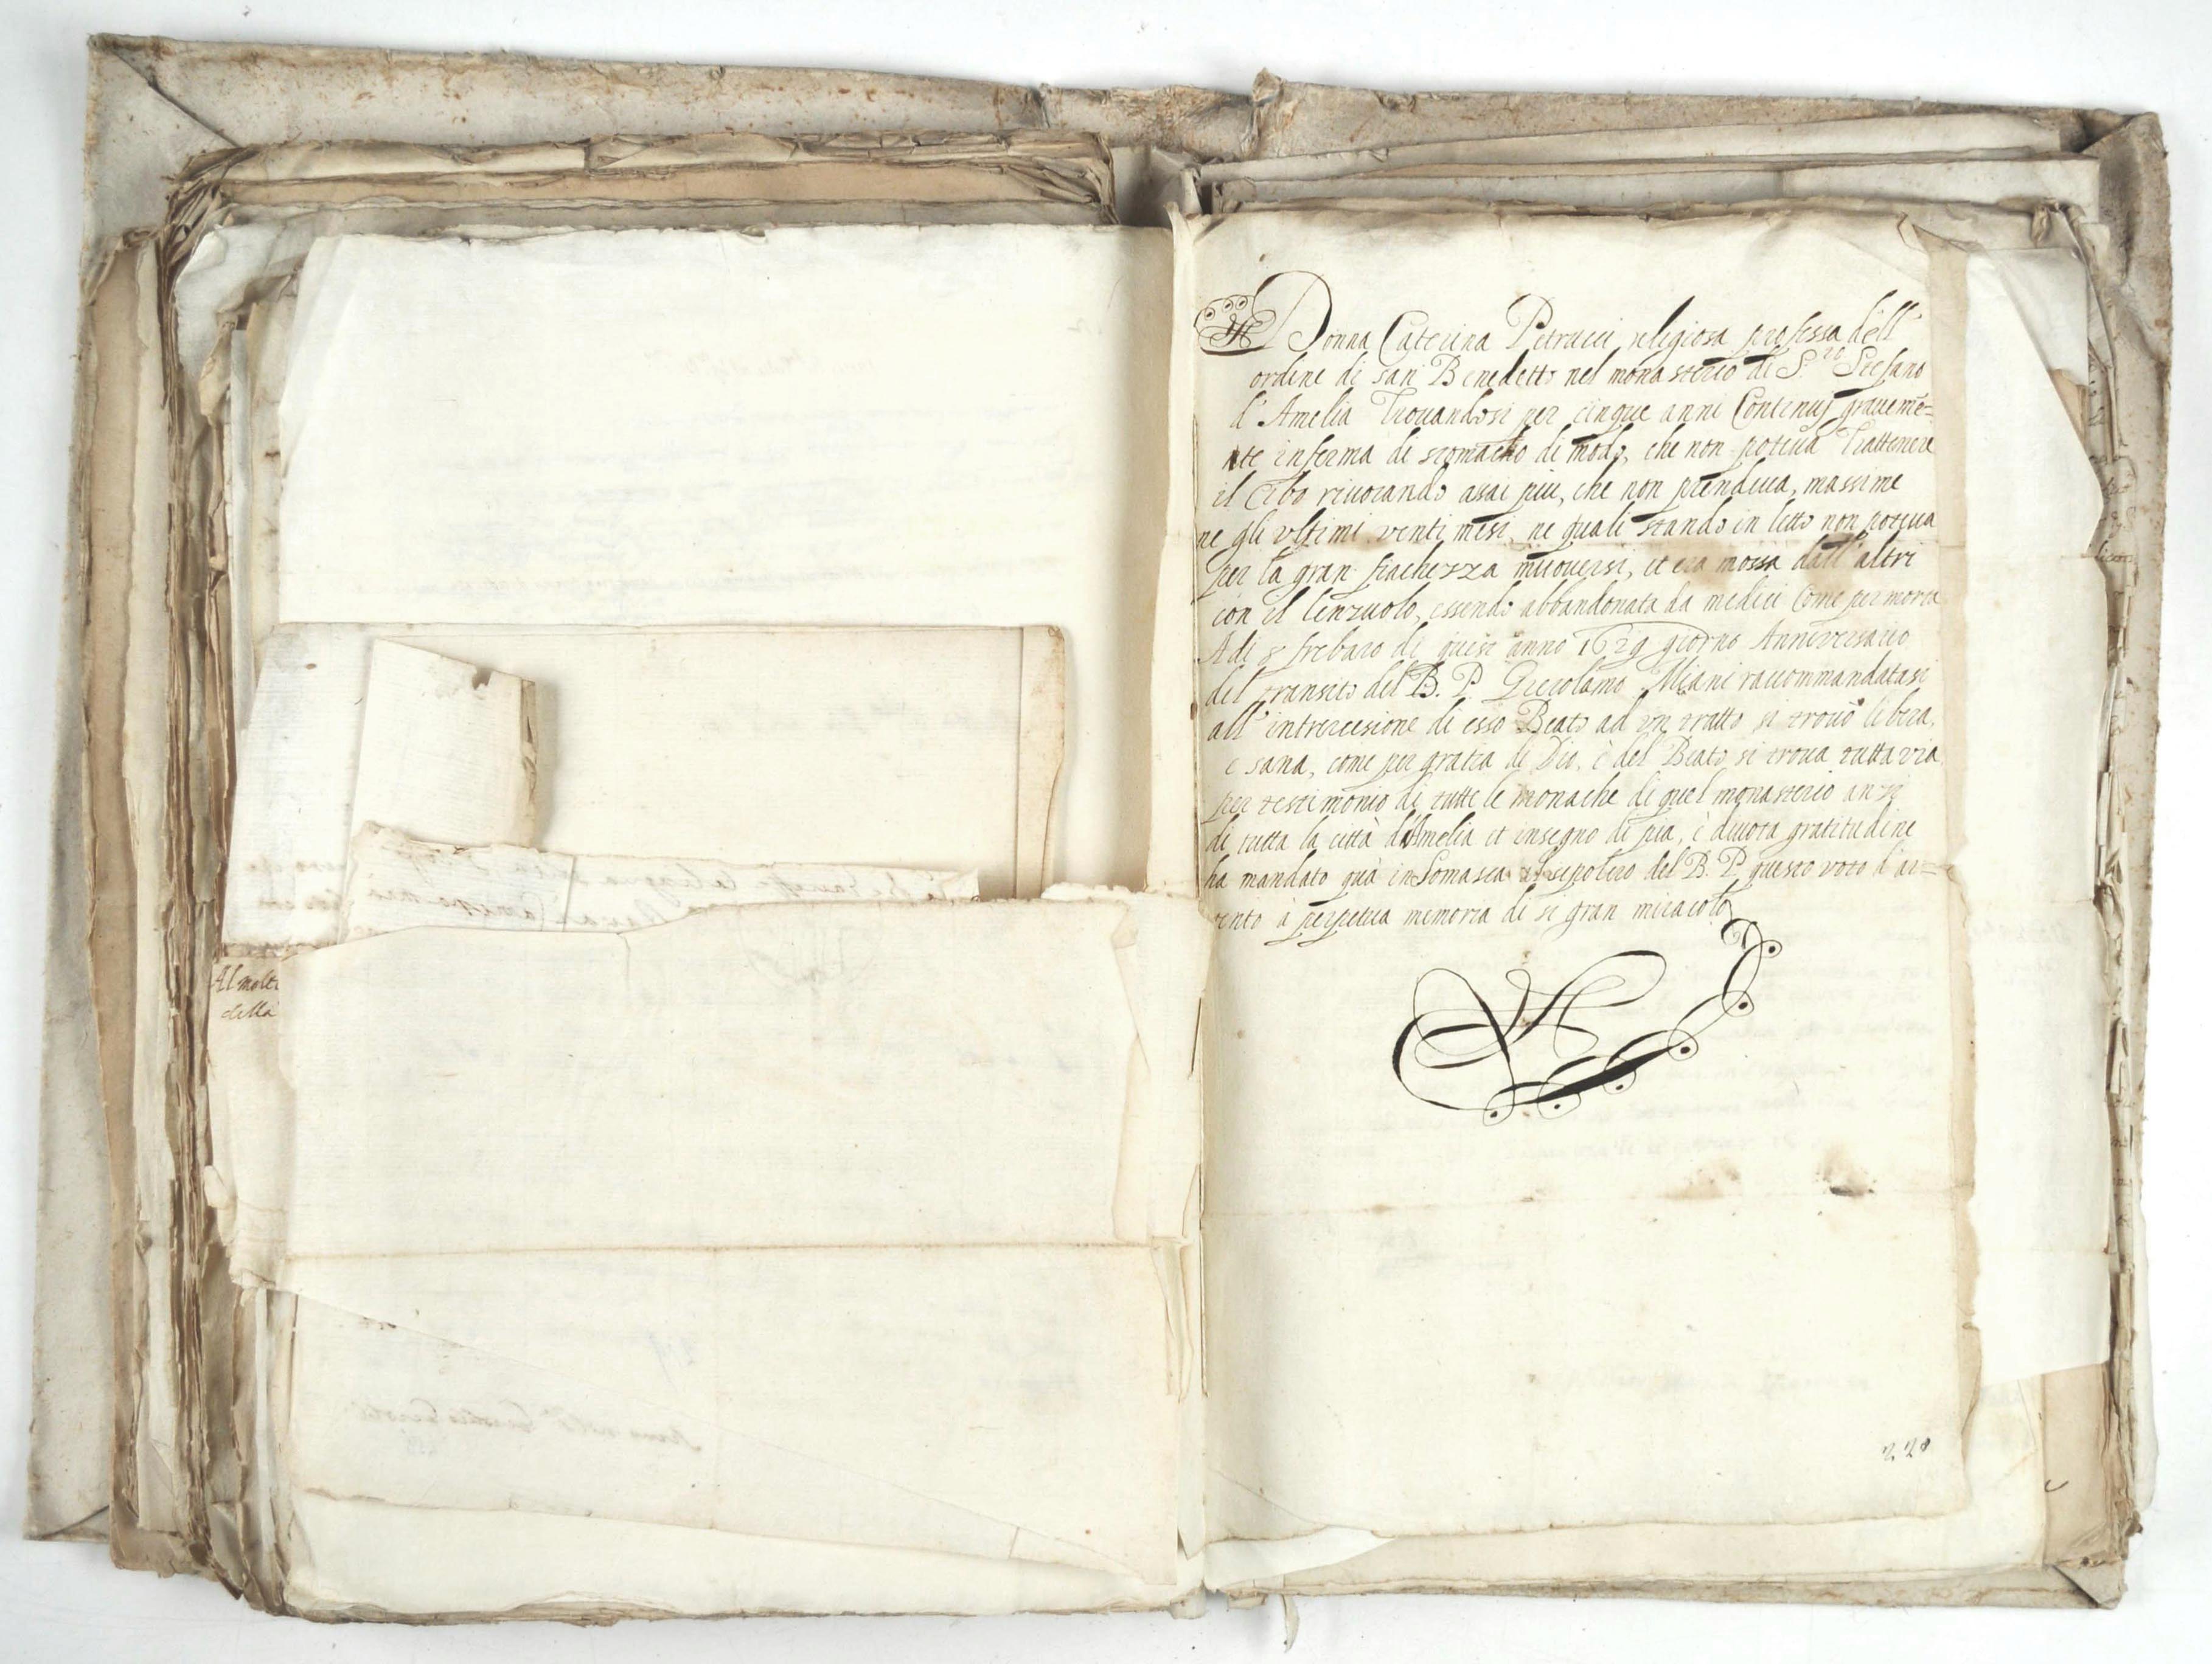 Al molto
della
Donna Caterina Petrucci religiosa professa dell'
ordine di san Benedetto nel monasterio di S.to Stefano
d'Amelia Trouandosi per cinque anni Continuj graueme=
nte inferma di stomacho di modo, che non poteua Trattenere
il Cibo riuocando asai piu, che non prendeua, massime
ne gli vltimi venti mesi, ne quali stando in letto non poteua
per la gran fiachezza muouersi, et era mossa dall'altri
con il lenzuolo, essendo abbandonata da medici Come per morta
A di 8 febraro di quest'anno 1629 giorno Anniversario
del transito del B. P. Gierolamo Miani raccommandatasi
all'intercesione di esso Beato ad un tratto si trouò libera,
e sana, come per gratia di Dio, è del Beato si troua tuttavia
per testimonio di tutte le monache di quel monasterio anzi
di tutta la città d'Amelia et insegno di pia, è diuota gratitudine
ha mandato quà in Somasca al sepolcro del B. P. questo voto d'ar=
ento à perpetua memoria di si gran miracolo
228